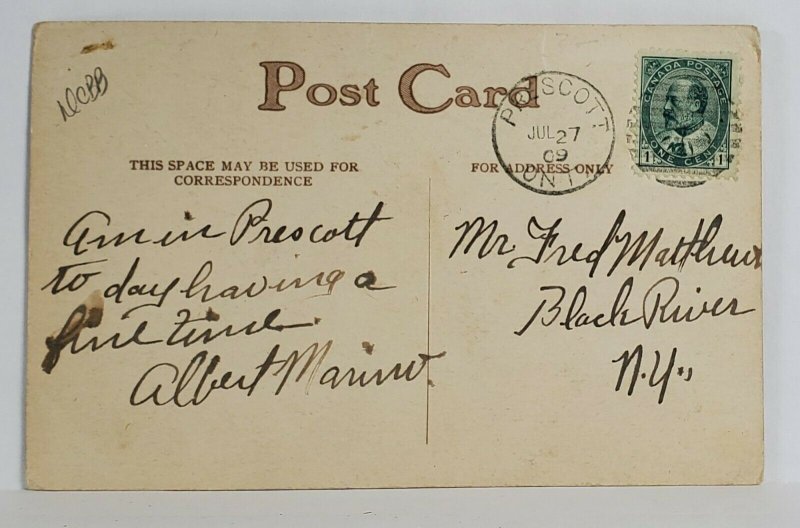 DCBB
Post Card
PRESCOTT
JUL 27
09
ONT
CANADA POSTAGE
1 ONE CENT 1
THIS SPACE MAY BE USED FOR
CORRESPONDENCE
FOR ADDRESS ONLY
Am in Prescott
to day having a
fine time.
Albert
Mr. Fred Matthews
Black River
N.Y.